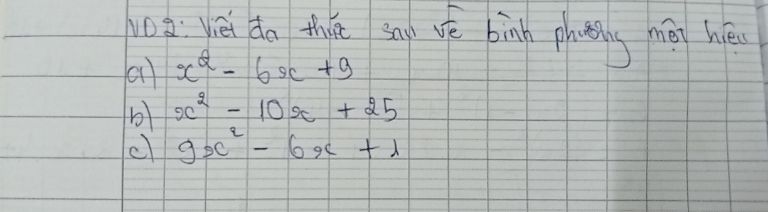 VD2: Viết đa thức sau về bình phương một hiệu
a) x² - 6x + 9
b) x² - 10x + 25
c) 9x² - 6x + 1